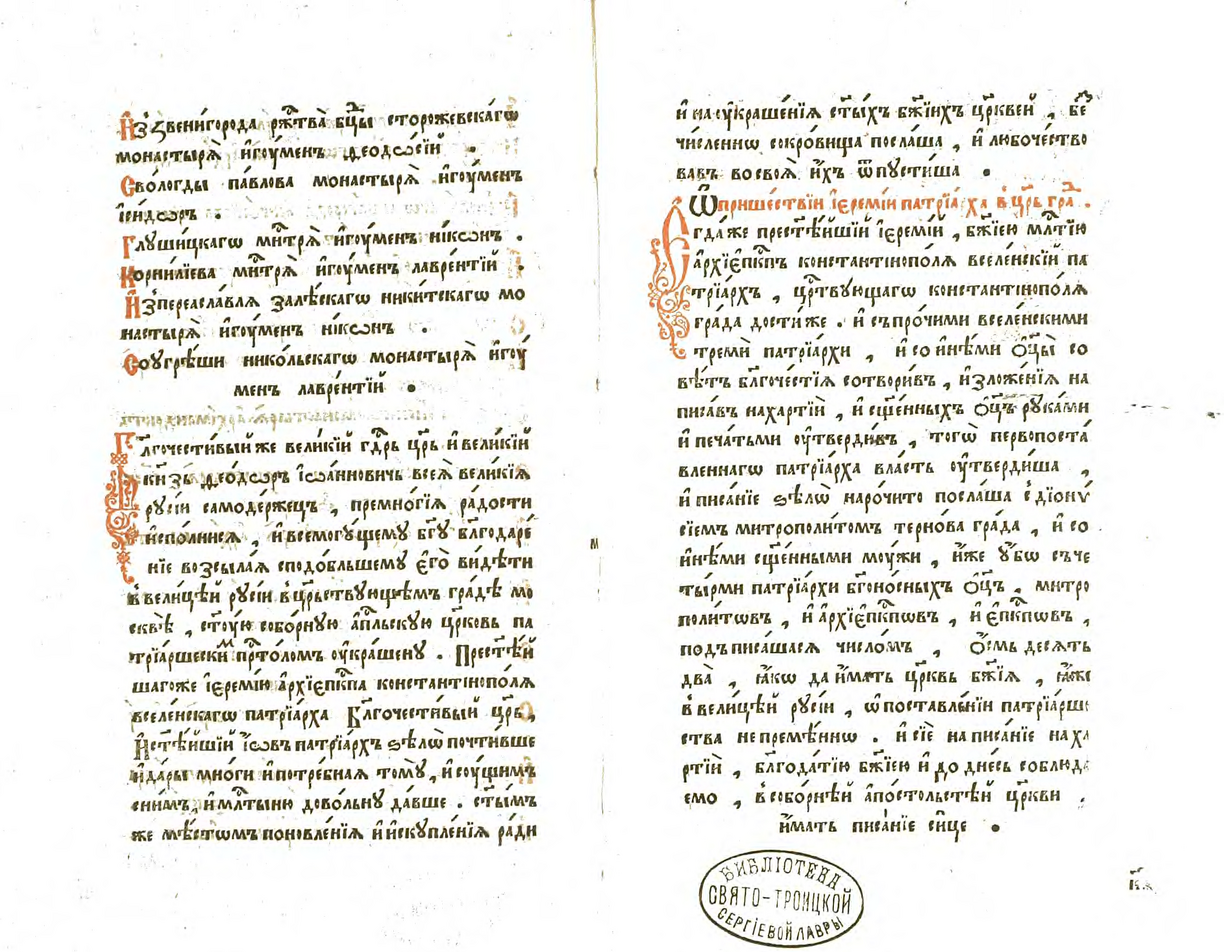 И҆з̾ звени́города рж҇тва̀ бц҇ы сторожевска́гѡ
монастырѧ̀ и҆гоу́менъ ѳеодѡсі́й .
Свологды па́влова монастырѧ̀ и҆гоу́менъ
і҆си́дѡръ .
Глꙋшицкагѡ мн҇трѧ̀ и҆гоу́менъ ні́кѡнъ .
Корни́лїева мн҇трѧ̀ и҆гоу́менъ лавре́нтїй .
И҆з̾переаславлѧ залѣ́скагѡ ники́тскагѡ мо
настырѧ̀ и҆гоу́менъ ні́кѡнъ .
Соугрѣ́ши нико́льскагѡ монастырѧ̀ и҆гоу́
менъ лавре́нтїй .
Бл҃гочести́вый же вели́кїй гд҇рь цр҃ь и҆ вели́кїй
кн҃зь ѳео́дѡръ і҆ѡа́нновичь всеѧ̀ вели́кїѧ
рꙋсі́и самодержецъ , премно́гїѧ ра́дости
и҆спо́лнисѧ , и҆ всемогꙋ́щемꙋ бг҃ꙋ бл҃годаре́
нїе возсыла́ѧ сподо́бльшемꙋ є҆го̀ ви́дѣти
в̾вели́цѣй рꙋсі́и в̾цр҃ьствꙋющемъ гра́дѣ мо
сквѣ̀ , ст҃ꙋ́ю собо́рнꙋю а҆пⷭ҇льскꙋю цр҃ковь па
трїа́ршескимъ прⷭ҇то́ломъ оу҆кра́шенꙋ . Прест҃ѣ́й
шагоже і҆еремі́ю а҆рхїепⷭ҇кпа константїнопо́лѧ
вселе́нскагѡ патрїа́рха Бл҃гочести́вый цр҃ь ,
И҆ ст҃ѣ́йшїй і҆́ѡвъ патрїа́рхъ ѕѣлѡ̀ почти́вше
и҆ да́ры мно́ги и҆ потре́бнаѧ томꙋ̀ , и҆ соу́щимъ
сни́мъ , и҆ мл҇тыню дово́льнꙋ да́вше . ст҃ы́мъ
же мѣ́стѡмъ поновле́нїѧ и҆ и҆скꙋпле́нїѧ ра́ди
и҆ на оу҆краше́нїѧ ст҃ы́хъ бж҃їихъ цр҃кве́й , бе
чи́сленнѡ сокро́вища посла́ша , и҆ любочество
вавъ во своѧ̀ и҆́хъ ѿпꙋсти́ша .
Ѡ҆ прише́ствїи і҆еремі́и патрїа́рха в̾ цр҃ь гра́д .
Е҆гда́ же прест҃ѣ́йшїй і҆еремі́й , бж҃їею мл҇тїю
а҆рхїепⷭ҇кпъ константїнопо́лѧ вселе́нскїй па
трїа́рхъ , цр҇твꙋющагѡ константїнопо́лѧ
гра́да дости́же . и҆ съ про́чими вселе́нскими
тремѝ патрїа́рхи , и҆ со и҆нѣ́ми ѻ҆ц҃ы̀ со
вѣ́тъ бл҃гоче́стїѧ сотвори́въ , и҆зложе́нїѧ на
писа́въ на ха́ртїи , и҆ сщ҃е́нныхъ ѻ҆ц҃ъ рꙋка́ми
и҆ печа́тьми оу҆тверди́въ , тогѡ̀ первопоста́
вленнагѡ патрїа́рха вла́сть оу҆тверди́ша ,
и҆ писа́нїе ѕѣлѡ̀ наро́чито посла́ша с̾ дїонѵ́
сїемъ митрополи́томъ терно́ва гра́да , и҆ со
и҆нѣ́ми сщ҃е́нными моу́жи , и҆́же оу҆́бѡ съ че
ты́рми патрїа́рхи бг҃оно́сныхъ ѻ҆ц҃ъ , митро
поли́тѡвъ , и҆ а҆рхїепⷭ҇кпѡвъ , и҆ є҆пⷭ҇кпѡвъ ,
под̾писа́шасѧ число́мъ , ѻ҆́смь десѧ́тъ
два̀ , ꙗ҆́кѡ да и҆́мать цр҃квь бж҃їѧ , ꙗ҆́же
в̾ вели́цѣй рꙋсі́и , ѡ҆ поставле́нїи патрїа́рше
ства непремѣ́ннѡ . и҆ сїѐ написа́нїе на ха
ртїи , бл҃года́тїю бж҃їею и҆ до дне́сь соблюда́
емо , в̾ собо́рнѣй а҆по́стольстѣй цр҃кви .
и҆́мать писа́нїе си́це .
БИБЛІОТЕКА
СВЯТО-ТРОИЦКОЙ
СЕРГІЕВОЙ ЛАВРЫ